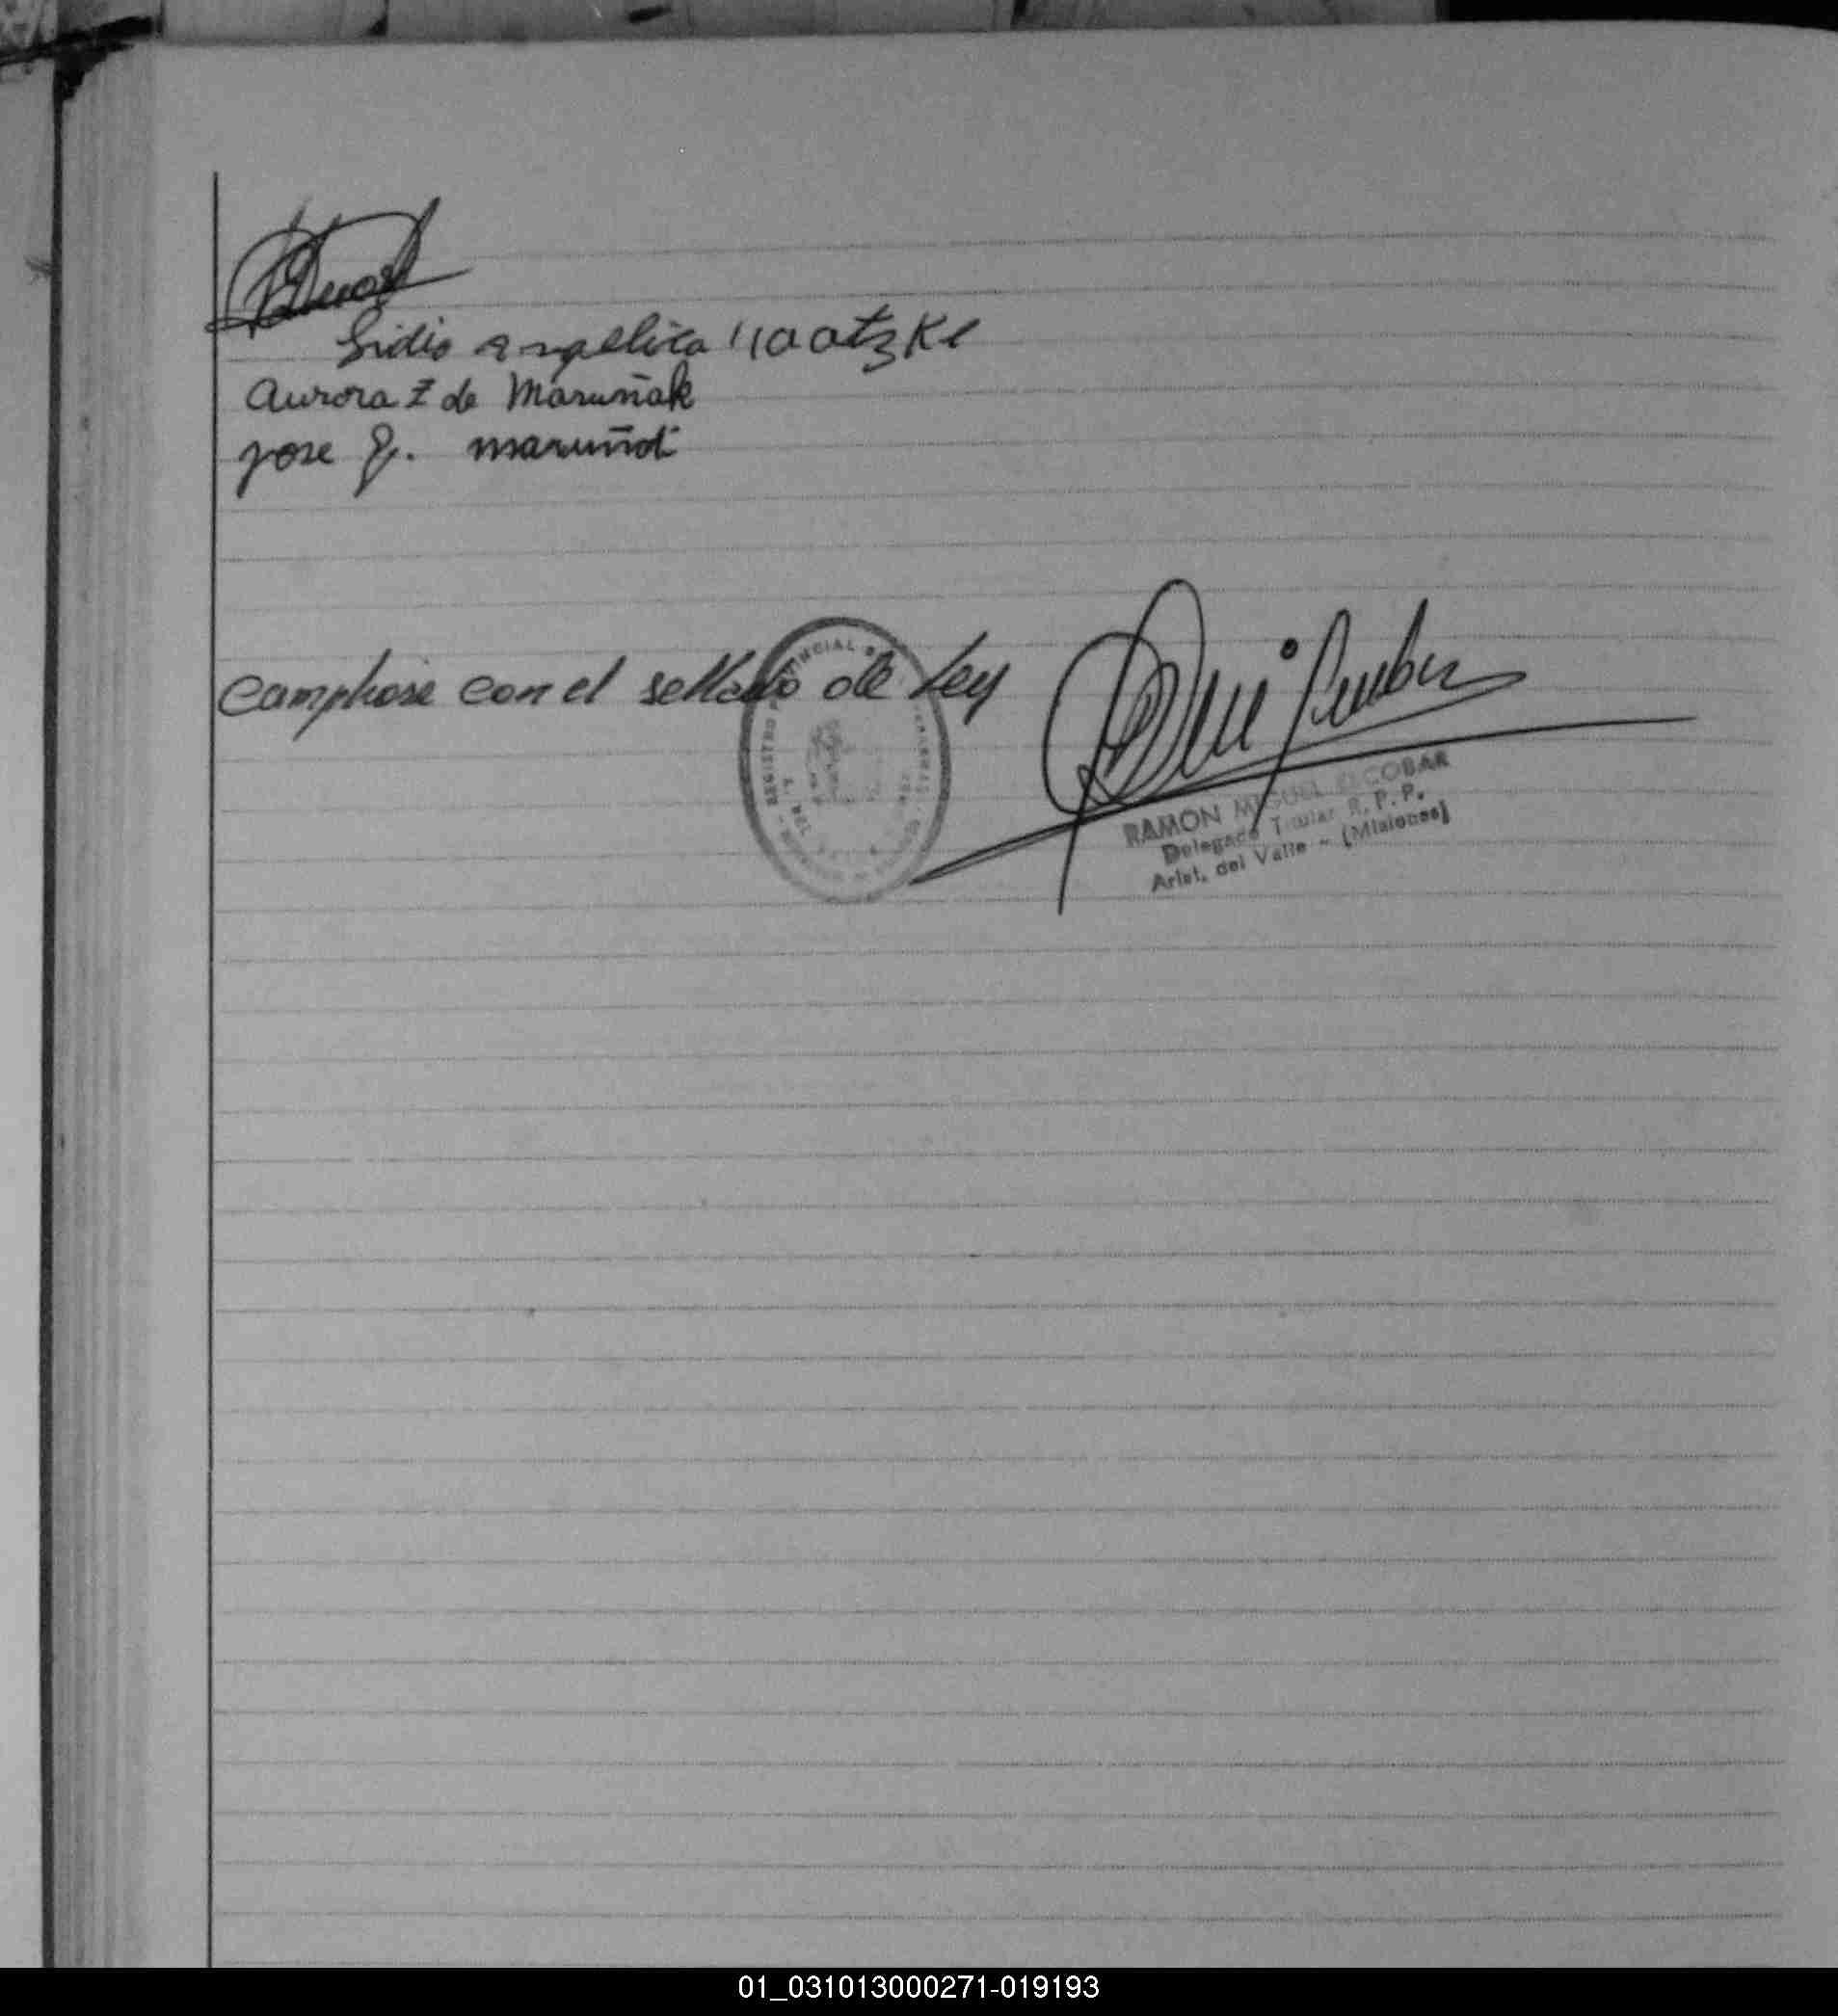 Lidia angelica
Aurora Z de Maruñak
jose J. maruñak
Camplase con el sellado de Ley
REGISTRO PROVINCIAL
RAMON MIGUEL ESCOBAR
Delegado Titular R. P. P.
Arist. del Valle - (Misiones)
01_031013000271-019193